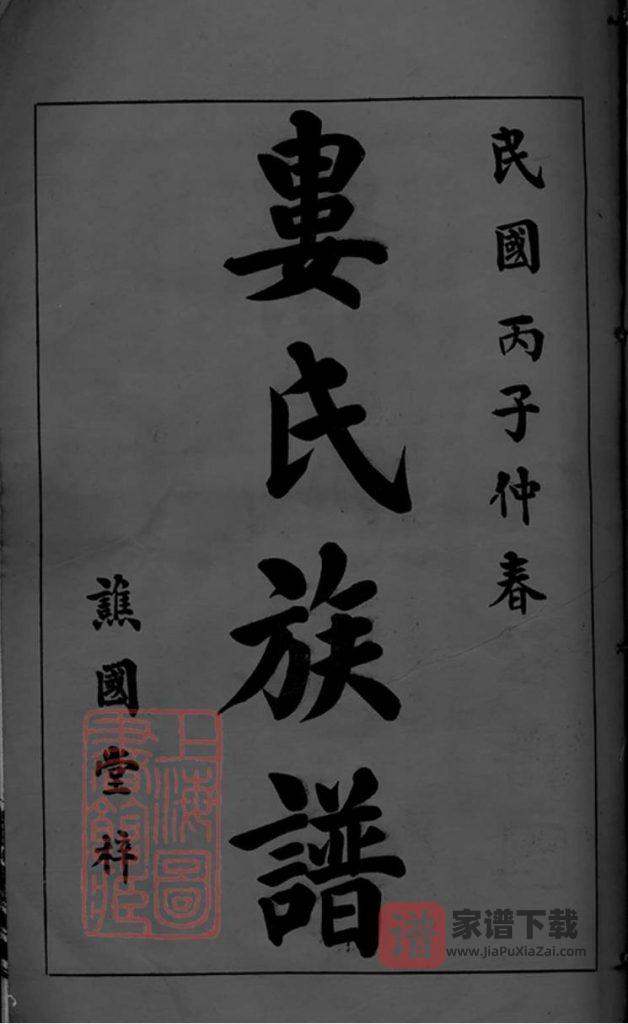 民國丙子仲春
婁氏族譜
譙國堂梓
上海圖
書館藏
谱
家谱下载
www.JiaPuXiaZai.com